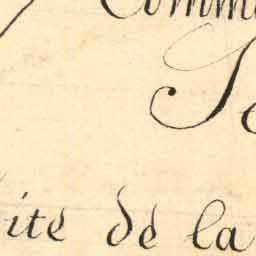 Comm
Se
ite de la